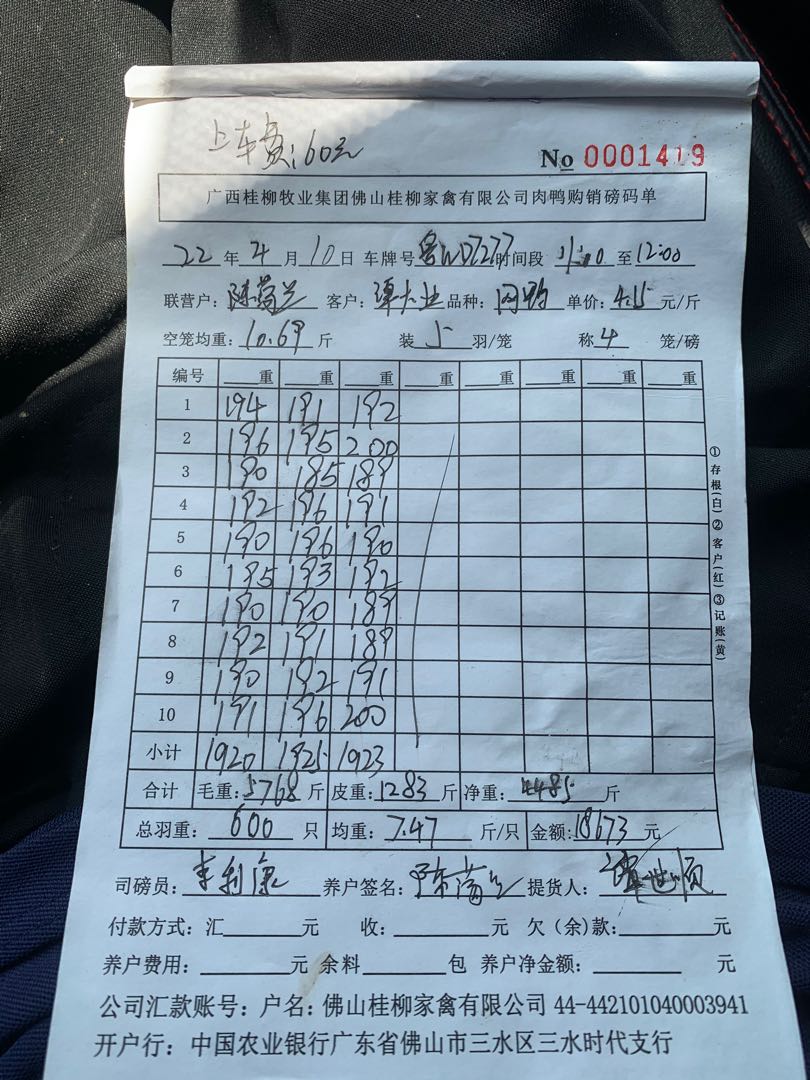 上车费:60元
No 0001419
广西桂柳牧业集团佛山桂柳家禽有限公司肉鸭购销磅码单
22年4月10日 车牌号粤WD7277时间段 至12:00
联营户: 客户:谭大业 品种: 单价:4.15元/斤
空笼均重:10.69斤 装5羽/笼 称4笼/磅
编号 重 重 重 重 重 重 重 重
1 194 191 192
2 196 195 200
3 190 185 189
4 192 196 191
5 190 196 190
6 195 193 192
7 190 190 189
8 192 191 189
9 190 192 191
10 191 196 200
小计 1920 1925 1923
合计 毛重:5768斤 皮重:1283斤 净重:4485斤
总羽重:600只 均重:7.47斤/只 金额:18673元
司磅员:李利康 养户签名: 提货人:谭世顺
付款方式:汇 元 收: 元 欠(余)款: 元
养户费用: 元 余料 包 养户净金额: 元
公司汇款账号:户名:佛山桂柳家禽有限公司 44-442101040003941
开户行:中国农业银行广东省佛山市三水区三水时代支行
①存根(白)②客户(红)③记账(黄)